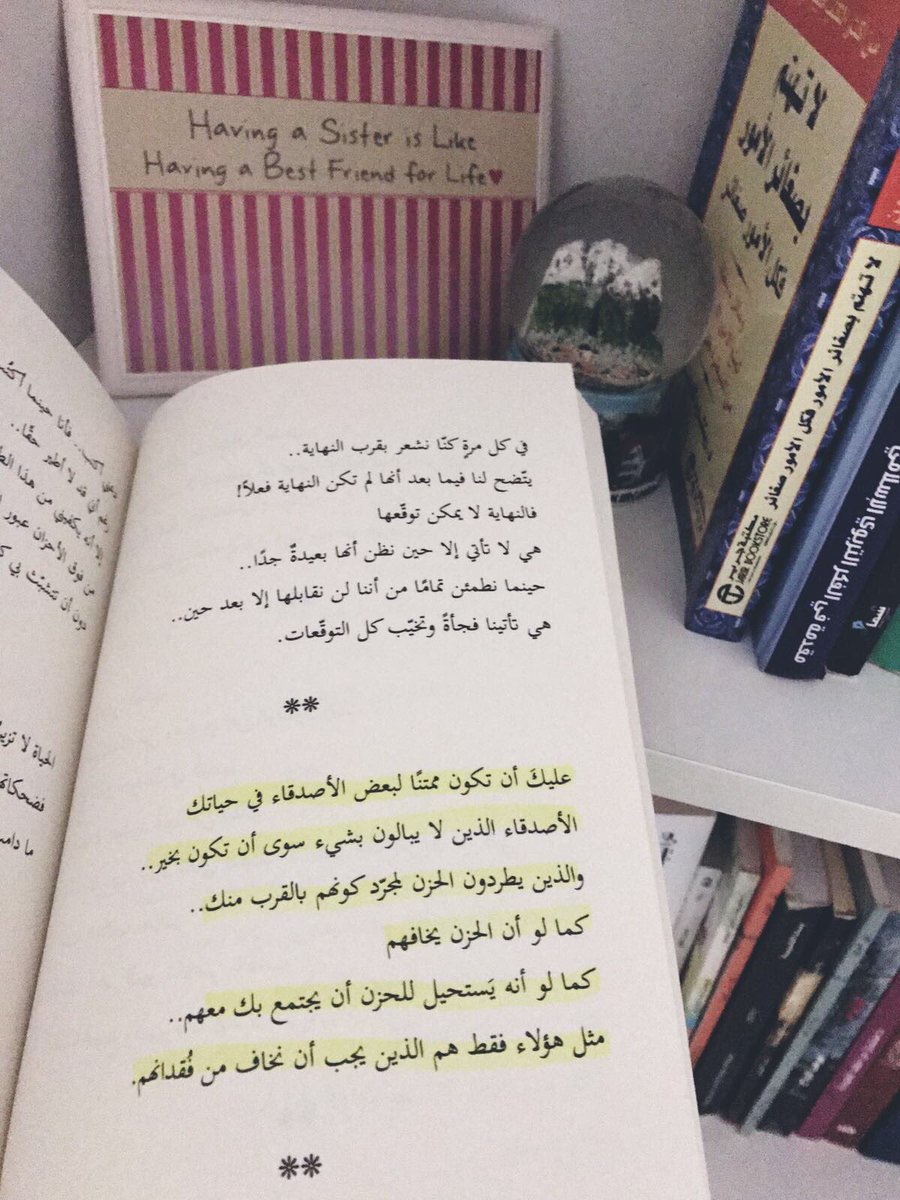 Having a Sister is Like
Having a Best Friend for Life♥
لا تهتم
بصغائر الأمور
فكل الأمور صغائر
لا تهتم بصغائر الأمور فكل الأمور صغائر
مكتبة جرير
JARIR BOOKSTORE
مقدمة في الفكر التربوي الإسلامي
في كل مرةٍ كنّا نشعر بقرب النهاية..
يتّضح لنا فيما بعد أنها لم تكن النهاية فعلاً!
فالنهاية لا يمكن توقّعها
هي لا تأتي إلا حين نظن أنها بعيدةٌ جدًا..
حينما نطمئن تمامًا من أننا لن نقابلها إلا بعد حين..
هي تأتينا فجأةً وتخيّب كل التوقّعات.
**
عليكَ أن تكون ممتنًا لبعض الأصدقاء في حياتك
الأصدقاء الذين لا يبالون بشيء سوى أن تكون بخير..
والذين يطردون الحزن لمجرّد كونهم بالقرب منك..
كما لو أن الحزن يخافهم
كما لو أنه يَستحيل للحزن أن يجتمع بك معهم..
مثل هؤلاء فقط هم الذين يجب أن نخاف من فُقدانهم.
**
فأنا حينما
قد لا أطير حقًا..
من هذا
من فوق الأحزان عبور
دون أن تتشبّث بي
الحياة لا